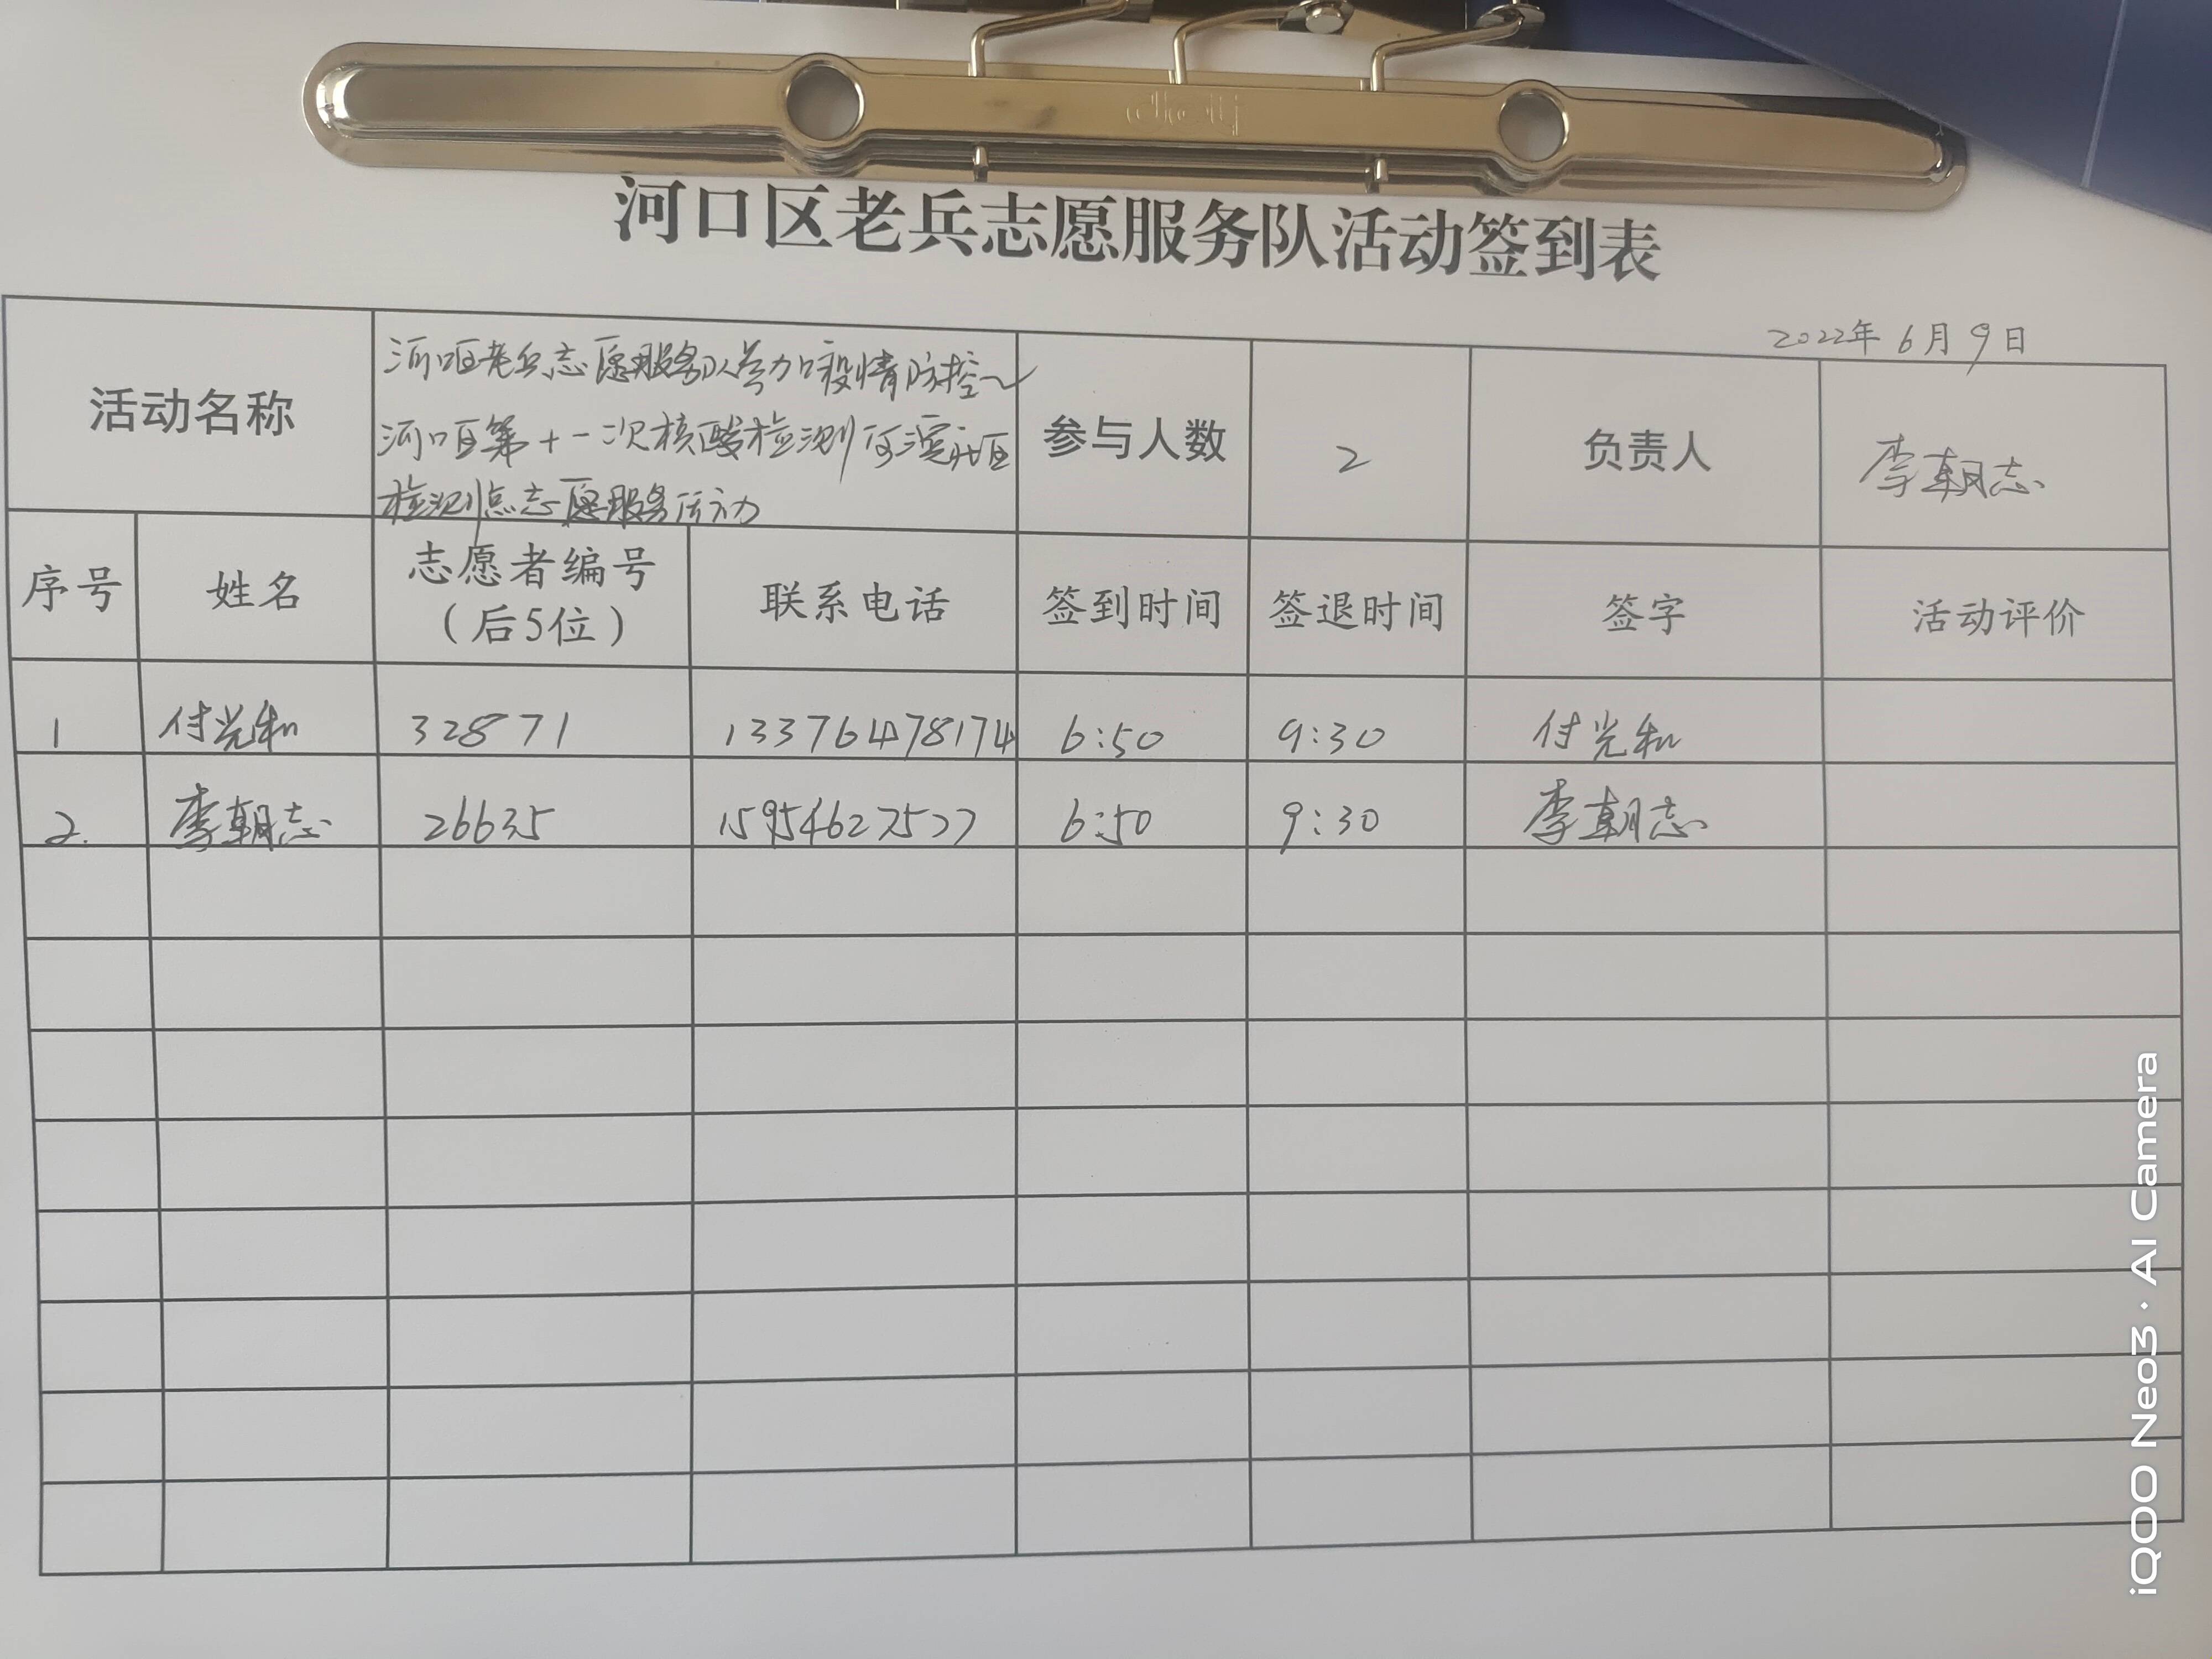 deli
河口区老兵志愿服务队活动签到表
2022年6月9日
活动名称
河口区老兵志愿服务队参加疫情防控～
河口区第十一次核酸检测河滨社区
检测点志愿服务活动
参与人数 2 负责人 李朝志
序号 姓名 志愿者编号 联系电话 签到时间 签退时间 签字 活动评价
（后5位）
1 付光和 32871 13376478174 6:50 9:30 付光和
2. 李朝志 26635 15954627577 6:50 9:30 李朝志
iQOO Neo3 · AI Camera